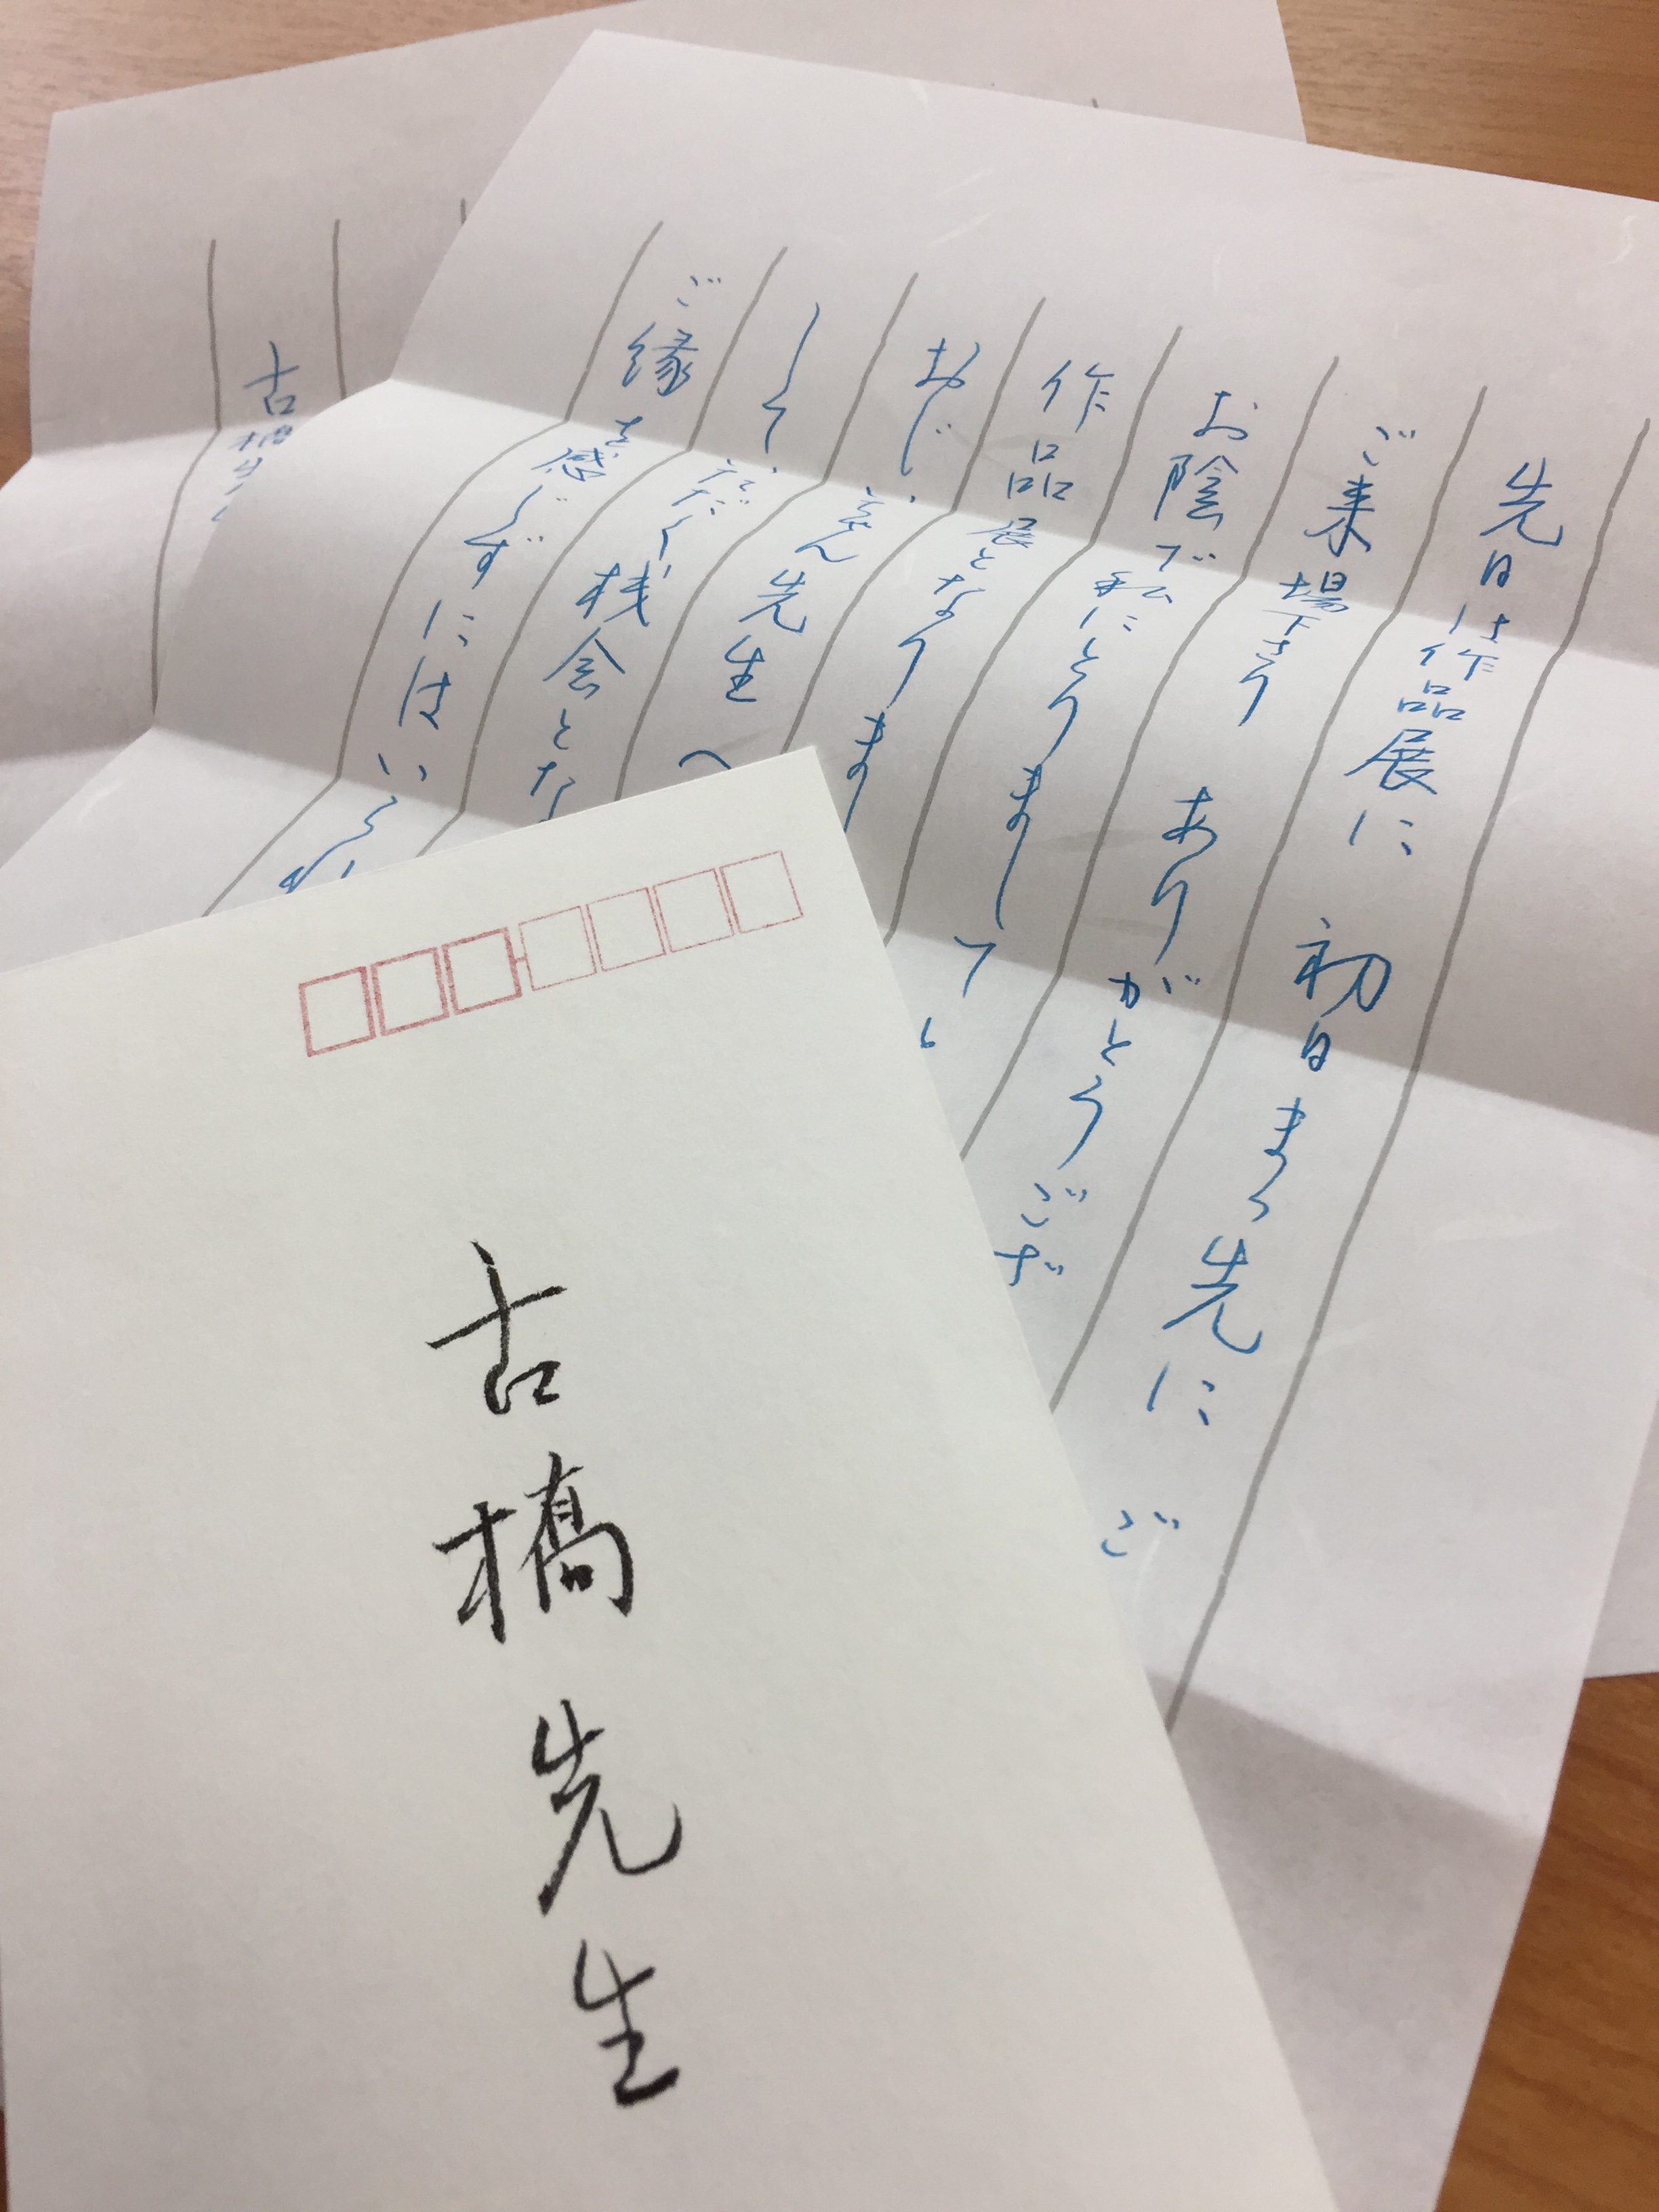 先日は作品展に 初日まっ先に ご
ご来場下さり ありがとうござ
お陰で私にとりまして
作品展となりま
先生へ
して いただく機会とな
ご縁を感じずにはいられ
古橋先
古橋先生